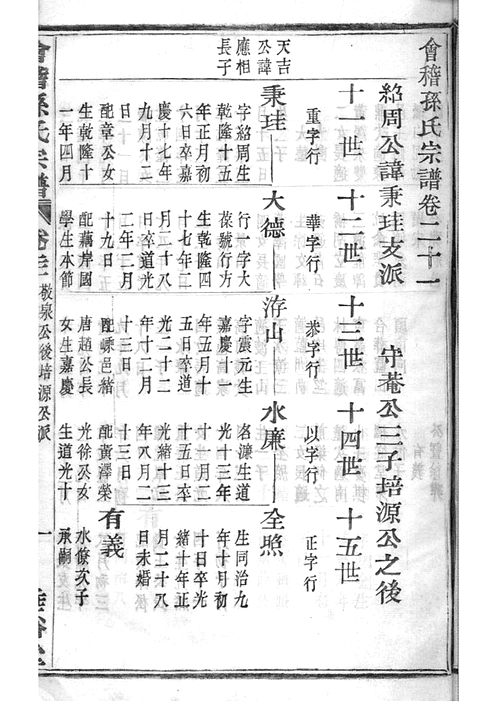 會稽孫氏宗譜卷二十一
紹周公諱秉珪支派　守菴公三子培源公之後
十一世　十二世　十三世　十四世　十五世
重字行　華字行　恭字行　以字行　正字行
天吉
公諱
應相
長子
秉珪
字紹周生
乾隆十五
年正月初
六日卒嘉
慶十七年
九月十二
日
配章公女
生乾隆十
一年四月
大德
行一字大
葆號行方
生乾隆四
十七年二
月二十八
日卒道光
二年三月
十九日
配蕅岸國
學生本節
洊山
字震元生
嘉慶十一
年五月十
五日卒道
光二十二
年十二月
十三日
配嵊邑緒
唐趙公長
女生嘉慶
水廉
名濂生道
光十三年
十一月二
十五日卒
光緒十三
年八月二
十三日
配黃澤榮
光徐公女
生道光十
全照
生同治九
年十月初
十日卒光
緒十年正
月二十八
日未婚
有義
水僚次子
承嗣
會稽孫氏宗譜
敬泉公後培源公派
一